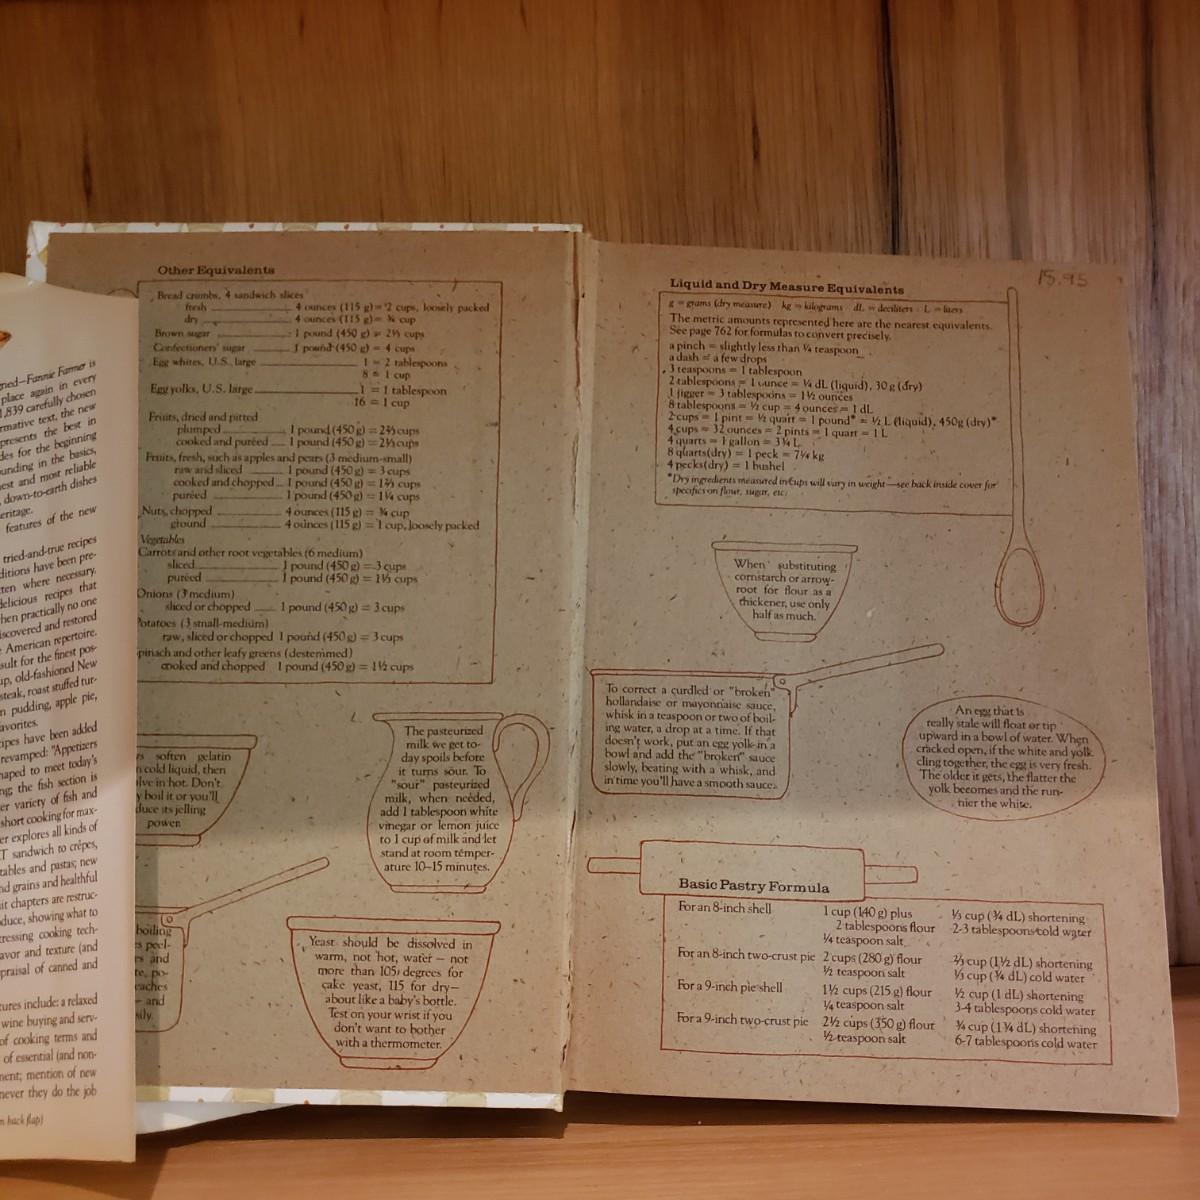 ned—Fannie Farmer is
place again in every
1,839 carefully chosen
rmative text, the new
presents the best in
des for the beginning
unding in the basics,
est and most reliable
down-to-earth dishes
eritage.
features of the new
tried-and-true recipes
ditions have been pre-
ten where necessary.
delicious recipes that
hen practically no one
iscovered and restored
American repertoire.
sult for the finest pos-
up, old-fashioned New
steak, roast stuffed tur-
n pudding, apple pie,
avorites.
ipes have been added
revamped: "Appetizers
haped to meet today's
ng; the fish section is
er variety of fish and
short cooking for max-
er explores all kinds of
T sandwich to crêpes,
tables and pastas; new
nd grains and healthful
it chapters are restruc-
duce, showing what to
tressing cooking tech-
avor and texture (and
praisal of canned and
tures include: a relaxed
wine buying and serv-
of cooking terms and
of essential (and non-
ment; mention of new
never they do the job
n back flap)
Other Equivalents
Bread crumbs, 4 sandwich slices
fresh 4 ounces (115 g) = 2 cups, loosely packed
dry 4 ounces (115 g) = ¾ cup
Brown sugar 1 pound (450 g) = 2⅓ cups
Confectioners' sugar 1 pound (450 g) = 4 cups
Egg whites, U.S. large 1 = 2 tablespoons
8 = 1 cup
Egg yolks, U.S. large 1 = 1 tablespoon
16 = 1 cup
Fruits, dried and pitted
plumped 1 pound (450 g) = 2⅔ cups
cooked and puréed 1 pound (450 g) = 2⅓ cups
Fruits, fresh, such as apples and pears (3 medium-small)
raw and sliced 1 pound (450 g) = 3 cups
cooked and chopped 1 pound (450 g) = 1⅔ cups
puréed 1 pound (450 g) = 1¼ cups
Nuts, chopped 4 ounces (115 g) = ¾ cup
ground 4 ounces (115 g) = 1 cup, loosely packed
Vegetables
Carrots and other root vegetables (6 medium)
sliced 1 pound (450 g) = 3 cups
puréed 1 pound (450 g) = 1⅓ cups
Onions (3 medium)
sliced or chopped 1 pound (450 g) = 3 cups
Potatoes (3 small-medium)
raw, sliced or chopped 1 pound (450 g) = 3 cups
pinach and other leafy greens (destemmed)
cooked and chopped 1 pound (450 g) = 1½ cups
rs soften gelatin
n cold liquid, then
lve in hot. Don't
y boil it or you'll
duce its jelling
power.
The pasteurized
milk we get to-
day spoils before
it turns sour. To
"sour" pasteurized
milk, when needed,
add 1 tablespoon white
vinegar or lemon juice
to 1 cup of milk and let
stand at room temper-
ature 10–15 minutes.
boiling
es peel-
rs and
te, po-
eaches
— and
sily.
Yeast should be dissolved in
warm, not hot, water — not
more than 105 degrees for
cake yeast, 115 for dry—
about like a baby's bottle.
Test on your wrist if you
don't want to bother
with a thermometer.
15.95
Liquid and Dry Measure Equivalents
g = grams (dry measure) kg = kilograms dL = deciliters L = liters
The metric amounts represented here are the nearest equivalents.
See page 762 for formulas to convert precisely.
a pinch = slightly less than ¼ teaspoon
a dash = a few drops
3 teaspoons = 1 tablespoon
2 tablespoons = 1 ounce = ¼ dL (liquid), 30 g (dry)
1 jigger = 3 tablespoons = 1½ ounces
8 tablespoons = ½ cup = 4 ounces = 1 dL
2 cups = 1 pint = ½ quart = 1 pound* = ½ L (liquid), 450g (dry)*
4 cups = 32 ounces = 2 pints = 1 quart = 1 L
4 quarts = 1 gallon = 3¾ L
8 quarts (dry) = 1 peck = 7¼ kg
4 pecks (dry) = 1 bushel
*Dry ingredients measured in cups will vary in weight—see back inside cover for
specifics on flour, sugar, etc.
When substituting
cornstarch or arrow-
root for flour as a
thickener, use only
half as much.
To correct a curdled or "broken"
hollandaise or mayonnaise sauce,
whisk in a teaspoon or two of boil-
ing water, a drop at a time. If that
doesn't work, put an egg yolk in a
bowl and add the "broken" sauce
slowly, beating with a whisk, and
in time you'll have a smooth sauce.
An egg that is
really stale will float or tip
upward in a bowl of water. When
cracked open, if the white and yolk
cling together, the egg is very fresh.
The older it gets, the flatter the
yolk becomes and the run-
nier the white.
Basic Pastry Formula
For an 8-inch shell 1 cup (140 g) plus ⅓ cup (¾ dL) shortening
2 tablespoons flour 2-3 tablespoons cold water
¼ teaspoon salt
For an 8-inch two-crust pie 2 cups (280 g) flour ⅔ cup (1½ dL) shortening
½ teaspoon salt ⅓ cup (¾ dL) cold water
For a 9-inch pie shell 1½ cups (215 g) flour ½ cup (1 dL) shortening
¼ teaspoon salt 3-4 tablespoons cold water
For a 9-inch two-crust pie 2½ cups (350 g) flour ¾ cup (1¾ dL) shortening
½ teaspoon salt 6-7 tablespoons cold water